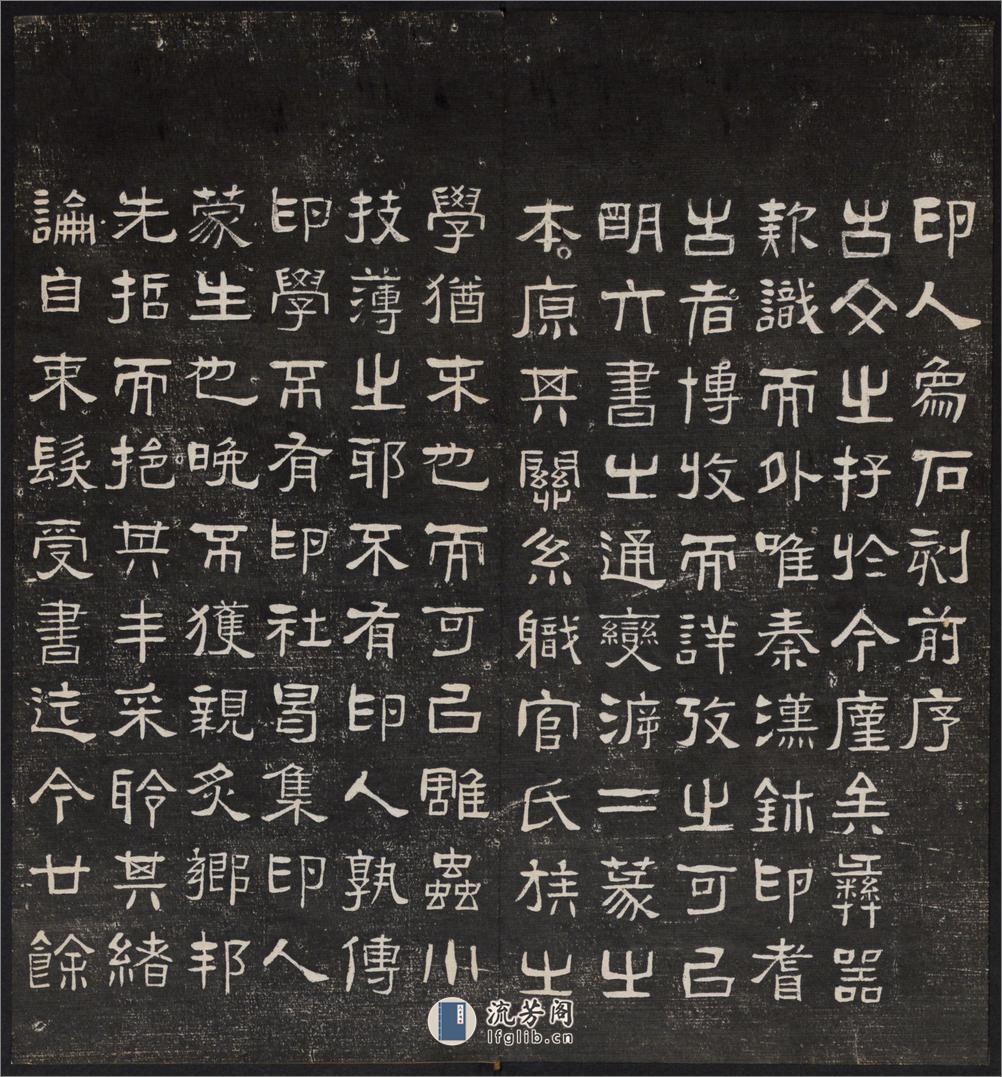 印人象石刻前序
古文之存於今廑矣彝器
款識而外唯秦漢鉥印耆
古者博收而詳攷之可㠯
朙六書之通變溯二篆之
本原其關系職官氏族之
學猶末也而可㠯雕蟲小
技薄之耶不有印人孰傳
印學不有印社曷集印人
蒙生也晚不獲親炙鄉邦
先哲而挹其丰采聆其緒
論自束髮受書迄今廿餘
流芳阁
lfglib.cn